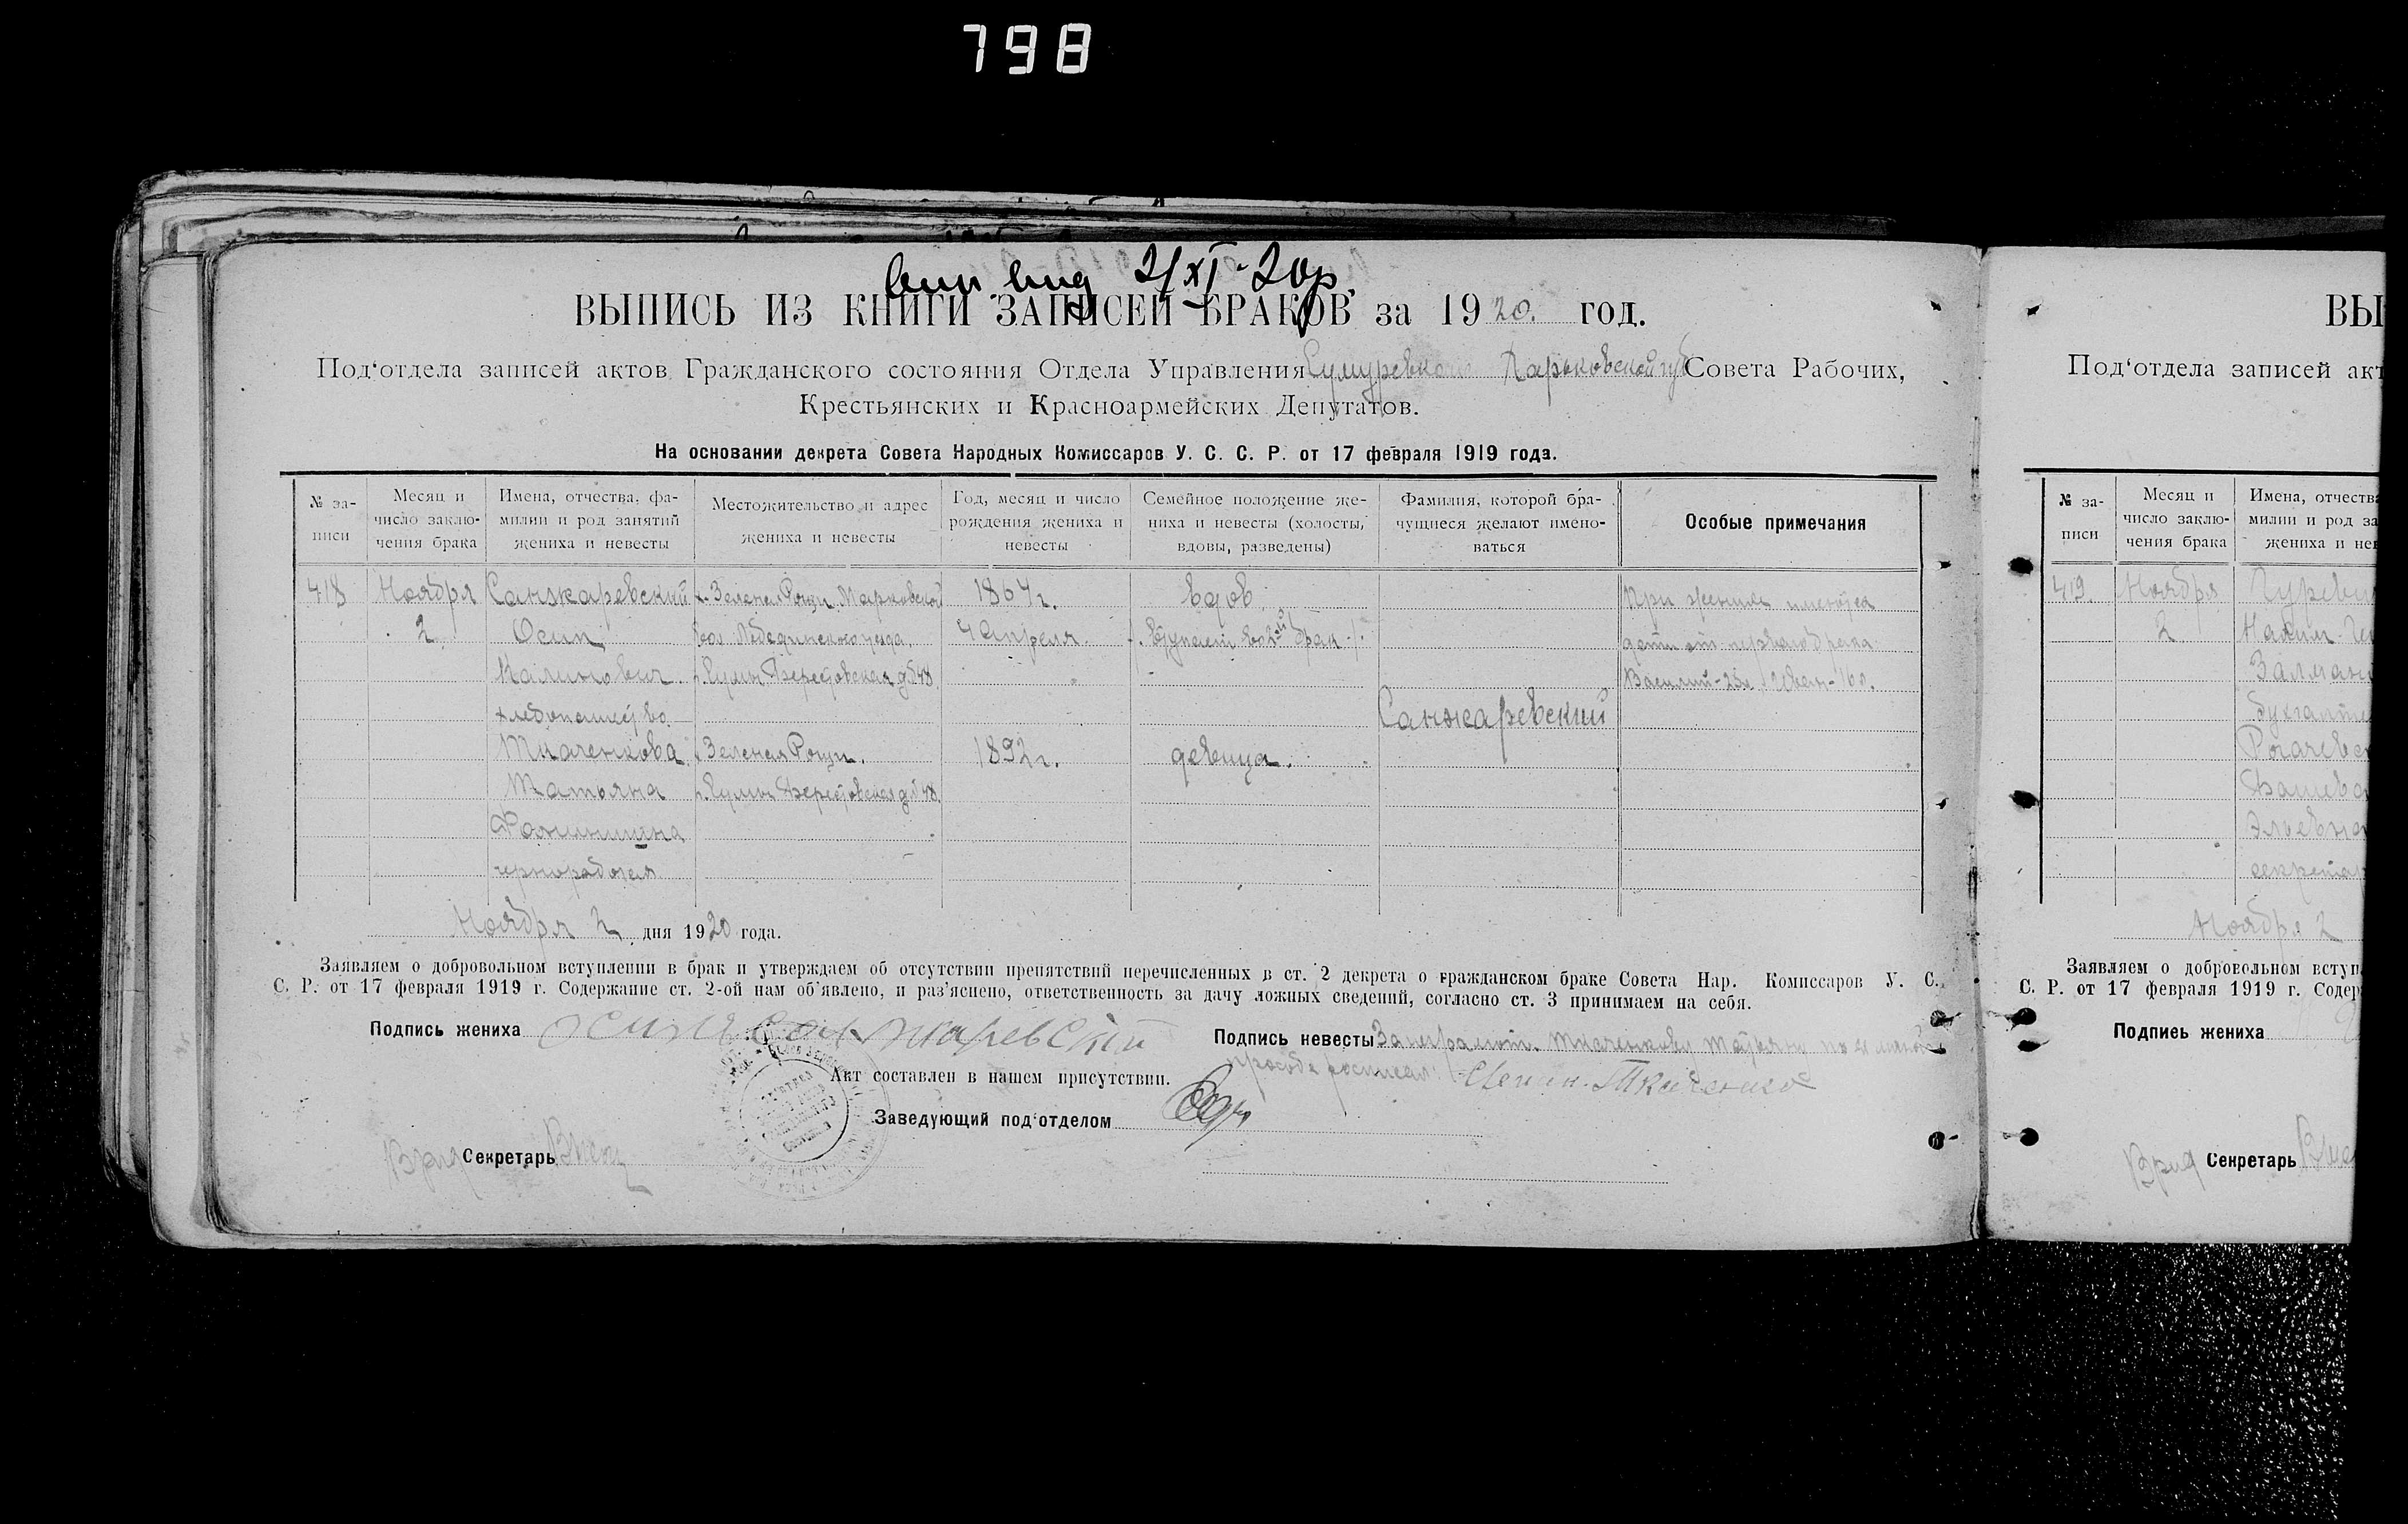 798
2/XI-20р.
ВЫПИСЬ ИЗ КНИГИ ЗАПИСЕЙ БРАКОВ за 1920. год.
Под‘отдела записей актов Гражданского состояния Отдела Управления Харьковской губ Совета Рабочих,
Крестьянских и Красноармейских Депутатов.
На основании декрета Совета Народных Комиссаров У. С. С. Р. от 17 февраля 1919 года.
№ за-
писи
Месяц и
число заклю-
чения брака
Имена, отчества, фа-
милии и род занятий
жениха и невесты
Местожительство и адрес
жениха и невесты
Год, месяц и число
рождения жениха и
невесты
Семейное положение же-
ниха и невесты (холосты,
вдовы, разведены)
Фамилия, которой бра-
чущиеся желают имено-
ваться
Особые примечания
418
Ноября
2
Санжаревский
Осип
хлебопашество
х. Зеленая Роща Марковской
вол. Лебединского уезда
г. Сумы Берестовская д № 48
1864 г.
4 апреля
вдов.
вступает во 2-ой брак
При женихе имеются
дети от первого брака
Василий - 23 л Иван - 16 л.
Санжаревский
Ткаченкова
Татьяна
чернорабочая
х Зеленая Роща.
г. Сумы Берестовская д № 48.
1892 г.
девица.
Ноября 2 дня 1920 года.
Заявляем о добровольном вступлении в брак и утверждаем об отсутствии препятствий перечисленных в ст. 2 декрета о гражданском браке Совета Нар. Комиссаров У. С.
С. Р. от 17 февраля 1919 г. Содержание ст. 2-ой нам об‘явлено, и раз‘яснено, ответственность за дачу ложных сведений, согласно ст. 3 принимаем на себя.
Подпись жениха осип санжаревский
Подпись невесты За неграмотн. Ткаченкову Татьяну по ея личной
просьбе росписал: Ткаченко
Акт составлен в нашем присутствии.
Заведующий под‘отделом
Врид Секретарь
ВЫ
Под‘отдела записей акт
№ за-
писи
Месяц и
число заклю-
чения брака
Имена, отчества
милии и род за
жениха и нев
419
Ноября
2
Ноября 2
Заявляем о добровольном вступ
С. Р. от 17 февраля 1919 г. Содер
Подпись жениха
Врид Секретарь